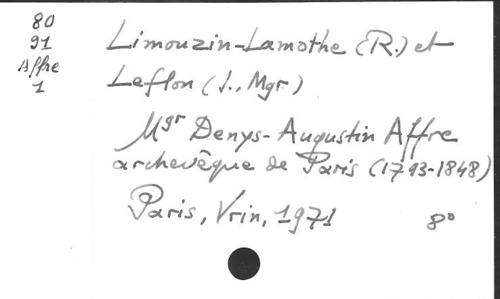 80
91
Affre
1
Limouzin-Lamothe (R.) et
Leflon (J., Mgr)
Mgr Denys-Augustin Affre
archevêque de Paris (1793-1848)
Paris, Vrin, 1971
8°